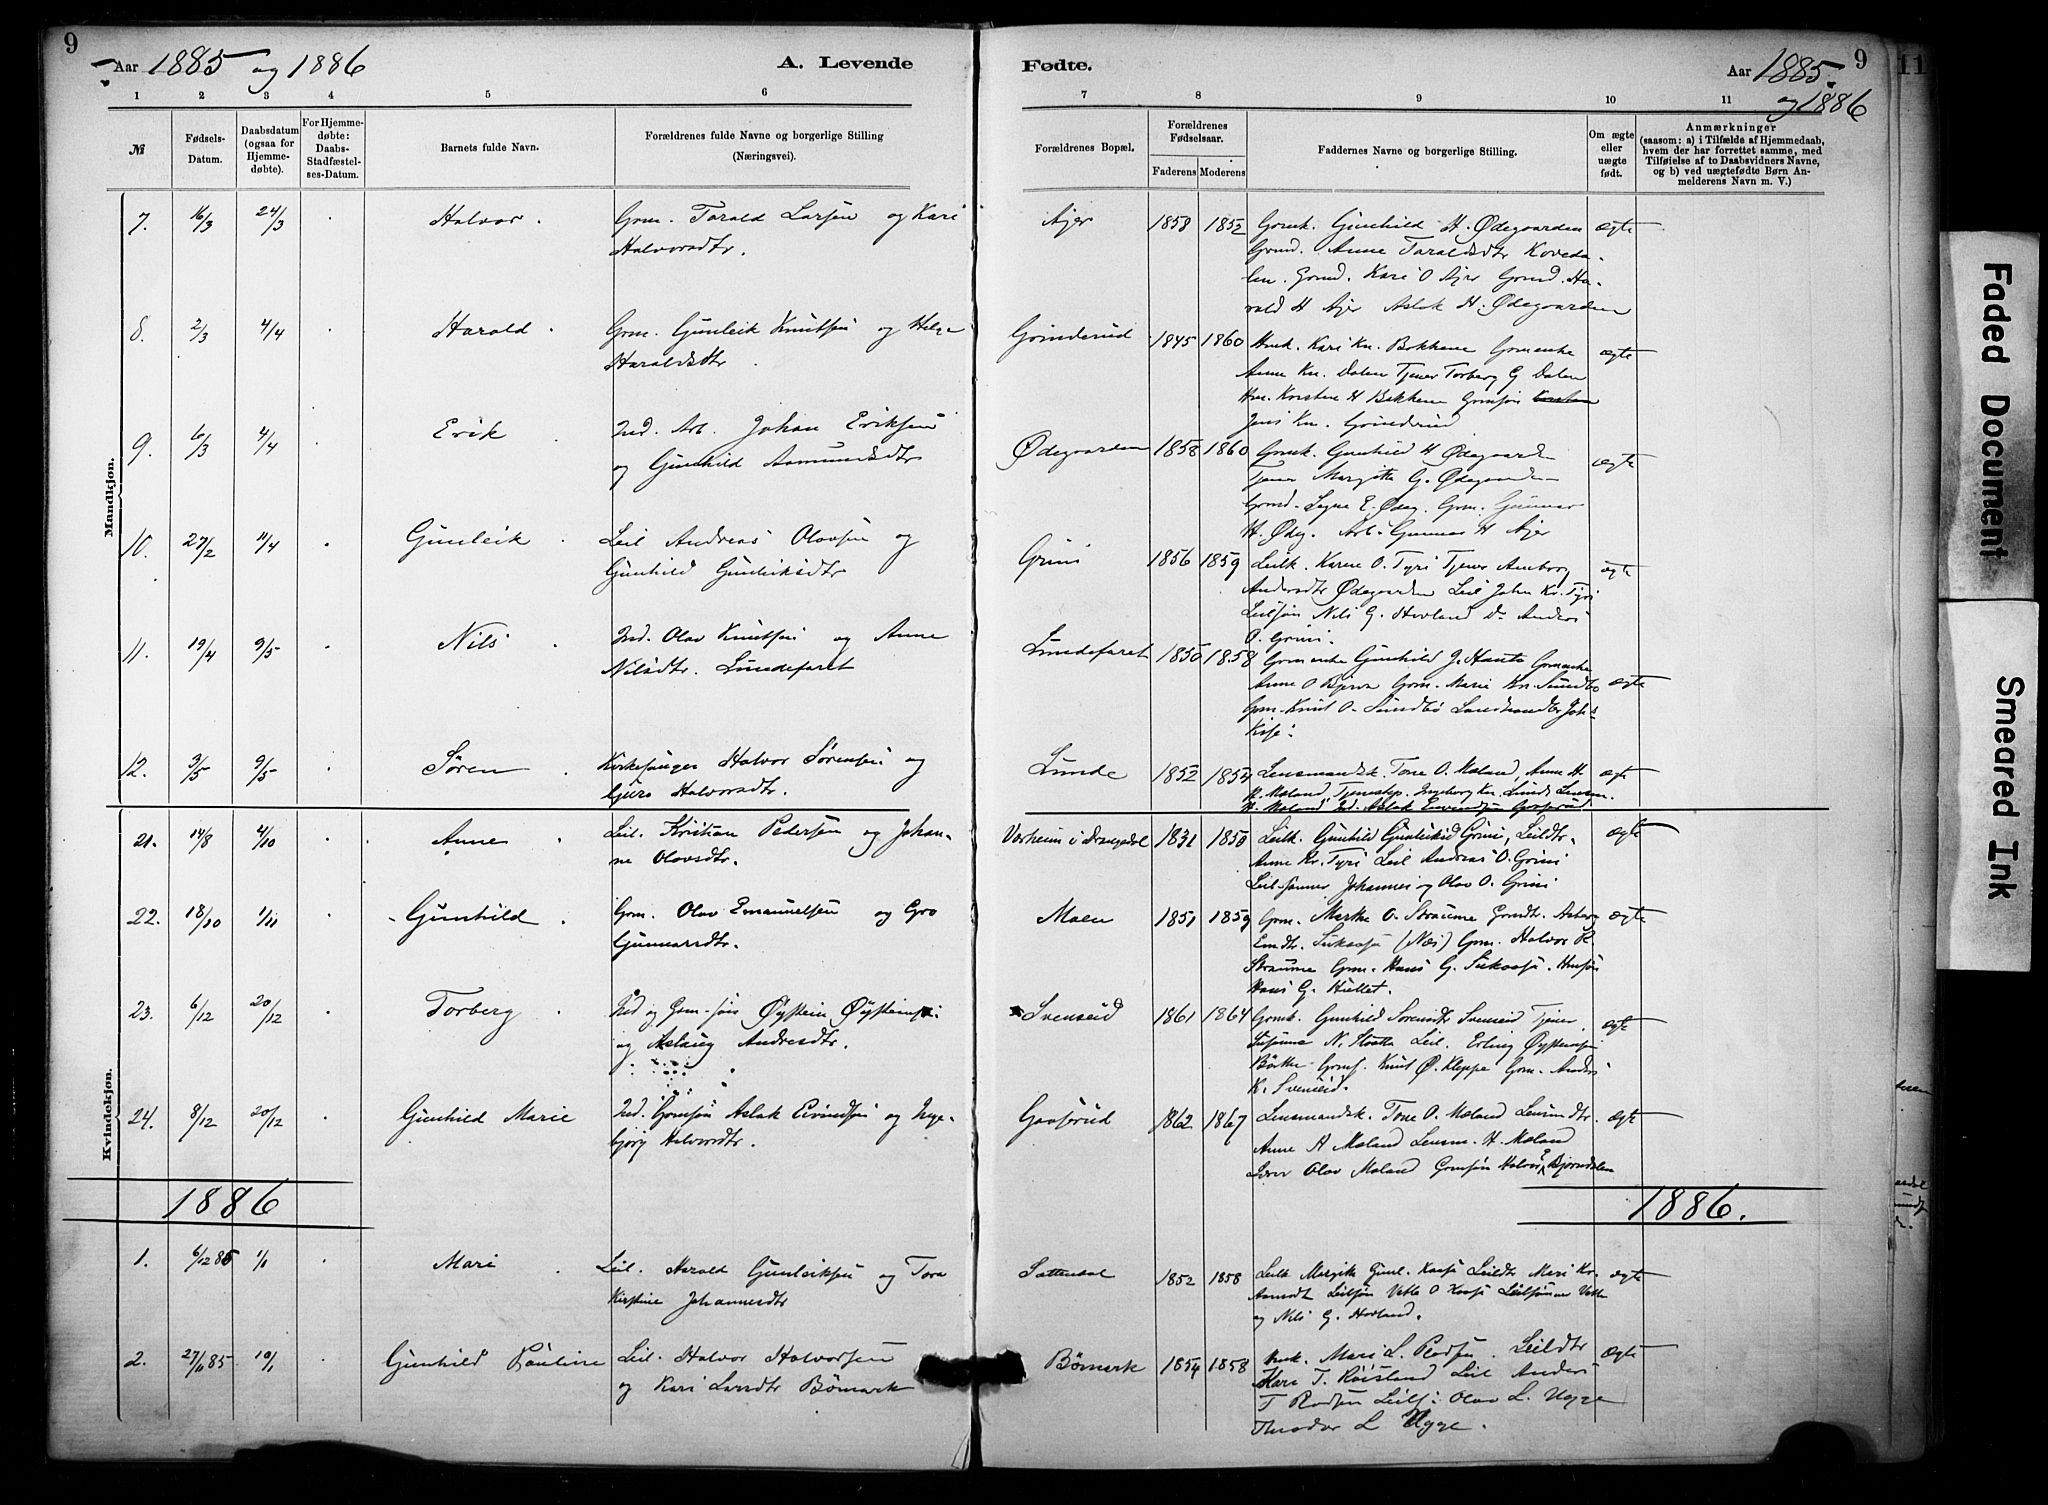 9
Aar 1885 og 1886
A. Levende
Fødte.
Aar 1885.
og 1886
9
11
1 2 3 4 5 6 7 8 9 10 11
№
Fødsels-
Datum.
Daabsdatum
(ogsaa for
Hjemme-
døbte).
For Hjemme-
døbte:
Daabs-
Stadfæstel-
ses-Datum.
Barnets fulde Navn.
Forældrenes fulde Navne og borgerlige Stilling
(Næringsvei).
Forældrenes Bopæl.
Forældrenes
Fødselsaar.
Faderens
Moderens
Faddernes Navne og borgerlige Stilling.
Om ægte
eller
uægte
født.
Anmærkninger
(saasom: a) i Tilfælde af Hjemmedaab,
hvem der har forrettet samme, med
Tilføielse af to Daabsvidners Navne,
og b) ved uægtefødte Børn An-
melderens Navn m. V.)
Mandkjøn.
7. 16/3 24/3 Halvor. Grm. Tarald Larsen og Kari
Halvorsdtr.
Ajer 1858 1852 Grmk. Gunhild H. Ødegaarden ægte
Grmd. Anne Taraldsdtr Koveda-
len. Grmd. Kari O Ajer Grmd. Ha-
rald H Ajer Aslak H. Ødegaarden
8. 2/3 4/4 Harald. Grm. Gunleik Knutsen og Helge
Haraldsdtr.
Grinderud 1845 1860 Hmk. Kari Kn. Bakkene Grmenke ægte
Anne Kn. Dalen Tjener Torberg G Dalen
Hm. Kristen H Bakkene Grmsøn
Jens Kn. Grinderud
9. 6/3 4/4 Erik Ind. Arb. Johan Eriksen
og Gunhild Aamundsdtr
Ødegaarden 1858 1860 Grmk. Gunhild H Ødegaarden ægte
Tjener Margitte G. Ødegaarden
Grmd. Signe E. Ødeg. Grm. Gunnar
H. Ødg. Arb. Gunnar H Ajer
10. 27/2 11/4 Gunleik Leil Andreas Olavsen og
Gunhild Gunleiksdtr
Grini 1856 1859 Leilk. Karen O. Tyri Tjener Amborg ægte
Andersdtr Ødegaarden Leil John Kr. Tyri
Leilsøn Nils G. Hovland Do Anders
O. Grini.
11. 19/4 9/5 Nils Ind. Olav Knutsen og Anne
Nilsdtr. Lundefaret
Lundefaret 1850 1858 Grmenke Gunhild J. Hauto Grmenke
Anne O Bjerva Grm. Marie Kn. Sundbø ægte
Grm. Knut O. Sundbø Landhandler Johs
Kise.
12. 3/5 9/5 Søren Kirkesanger Halvor Sørensen og
Gjuro Halvorsdtr.
Lunde 1852 1854 Lensmandsk. Tone O. Mæland, Anne H. ægte
H. Mæland Tjenestep. Ingeborg Kn. Lunde Lensm.
H. Mæland Ind. Aslak Eivindsen Gaasrud
Kvindekjøn.
21. 14/8 4/10 Anne Leil. Kristian Pedersen og Johan-
ne Olavsdtr.
Værheim i Drangedal 1831 1850 Leilk. Gunhild Gunleiksd Grini, Leildtr. ægte
Anne Kr. Tyri Leil Andreas O. Grini
Leil.sønner Johannes og Olav O. Grini
22. 18/10 1/11 Gunhild Grm. Olav Emanuelsen og Gro
Gunnarsdtr.
Moen 1851 1859 Grm. Marthe O. Straume Grmdt. Asberg ægte
Emdtr. Sukaasa (Næs) Grm. Halvor R.
Straume Grm. Hans G. Sukaasa. Hmsøn
Hans G. Hullet.
23. 6/12 20/12 Torberg Ind og Grm.søn Øystein Øysteinsen
og Aslaug Andresdtr.
Svenseid 1861 1864 Grmk. Gunhild Sorensdtr Svenseid Tjener ægte
Susanne N. Hoatta Leil. Erling Øysteinsen
Børthe Grmf. Knut Ø. Kleppe Grm. Anders
K. Svenseid.
24. 8/12 20/12 Gunhild Marie Ind. Grmsøn Aslak Eivindsen og Inge-
bjørg Halvorsdtr.
Gaasrud 1862 1867 Lensmandsk. Tone O. Mæland Lensmdtr. ægte
Anne H Mæland Lensm. H. Mæland
Lærer Olav Mæland Grmsøn Halvor Bjørndalen
1886
1886.
1. 6/12 85 1/1 Mari Leil. Harald Gunleiksen og Tora
Kirstine Johannesdtr
Sættendal 1852 1858 Leilk Margit Gunl. Kaasa Leildtr Mari Kr. ægte
Aamodt Leilsøn Vetle O Kaasa Leilsønner Vetle
og Nils G. Hovland.
2. 27/11 85 10/1 Gunhild Pauline Leil. Halvor Halvorsen
og Kari Larsdtr Bømark
Bømark 1854 1858 Hmk. Mari L. Rodsen. Leildtr ægte
Kari T. Røisland Leil Anders
T Rodsen Leils: Olav L. Ugge
Theodor L Ugge.
Faded Document
Smeared Ink